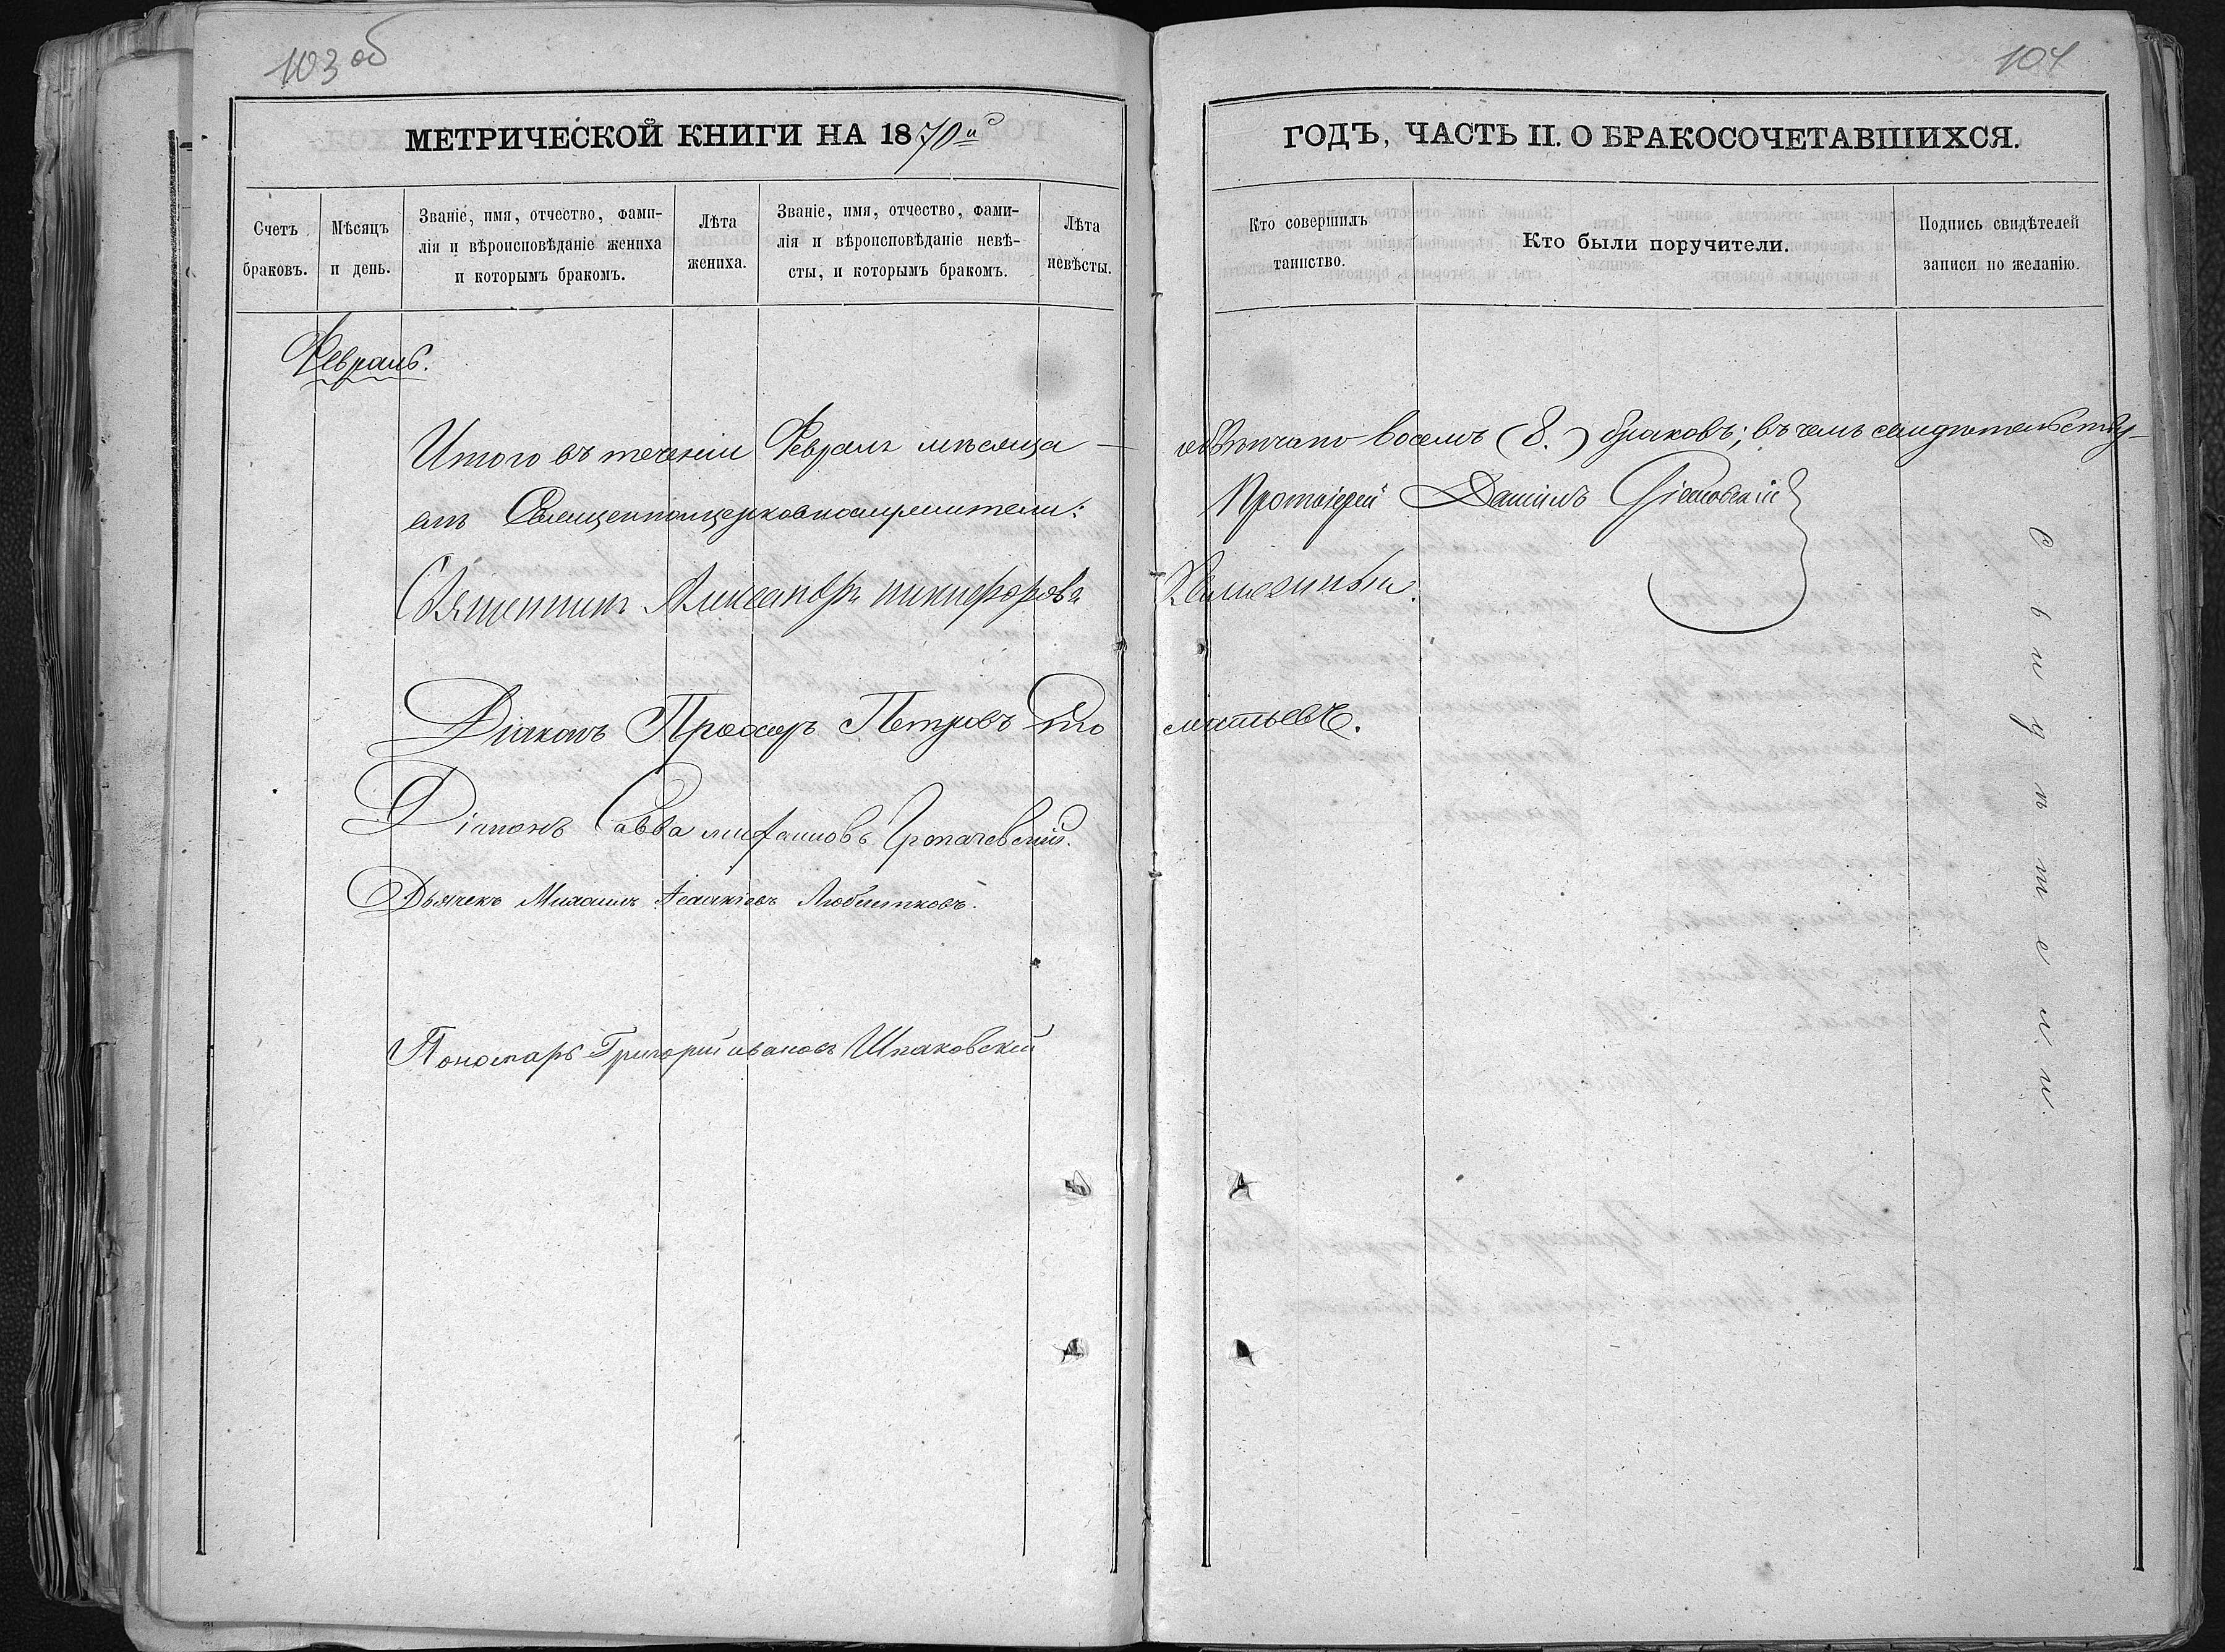 103 об
104
МЕТРИЧЕСКОЙ КНИГИ НА 1870й
ГОДЪ, ЧАСТЬ II. О БРАКОСОЧЕТАВШИХСЯ.
Счетъ браковъ.
Мѣсяцъ и день.
Званіе, имя, отчество, фами-
лія и вѣроисповѣданіе жениха
и которымъ бракомъ.
Лѣта жениха.
Званіе, имя, отчество, фами-
лія и вѣроисповѣданіе невѣ-
сты, и которымъ бракомъ.
Лѣта невѣсты.
Кто совершилъ таинство.
Кто были поручители.
Подпись свидѣтелей
записи по желанію.
Февраль.
Итого въ теченіи Февраля мѣсяца
повѣнчано восемь (8.) браковъ; въ чемъ свидѣтельству-
емъ Священноцерковнослужители:
Протоіерей Даниилъ
Священникъ Александръ Никифоровъ
Діаконъ Прохоръ Петровъ
Діаконъ Савва
Дьячекъ Михаилъ
Пономарь Григорій Ивановъ Шпаковскій